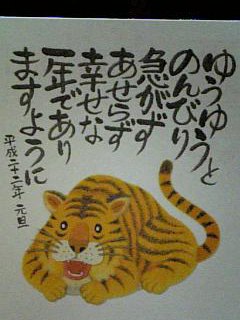 ゆうゆうと
のんびり
急がず
あせらず
幸せな
一年であり
ますように
平成二十二年 元旦